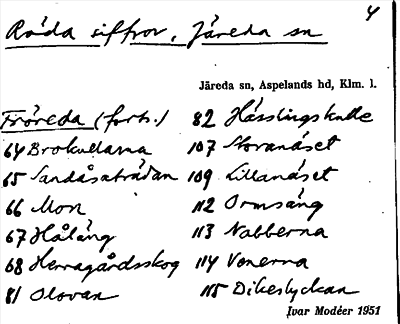 4
Röda siffror, Järeda sn
Järeda sn, Aspelands hd, Klm. l.
Fröreda (forts.)
64 Brokullarna
65 Sandåsaträdan
66 Mon
67 Håläng
68 Herragårdsskog
81 Olovan
82 Hässlingskulle
107 Storanäset
109 Lillanäset
112 Ormsäng
113 Nabberna
114 Venerna
115 Dikeslyckan
Ivar Modéer 1951